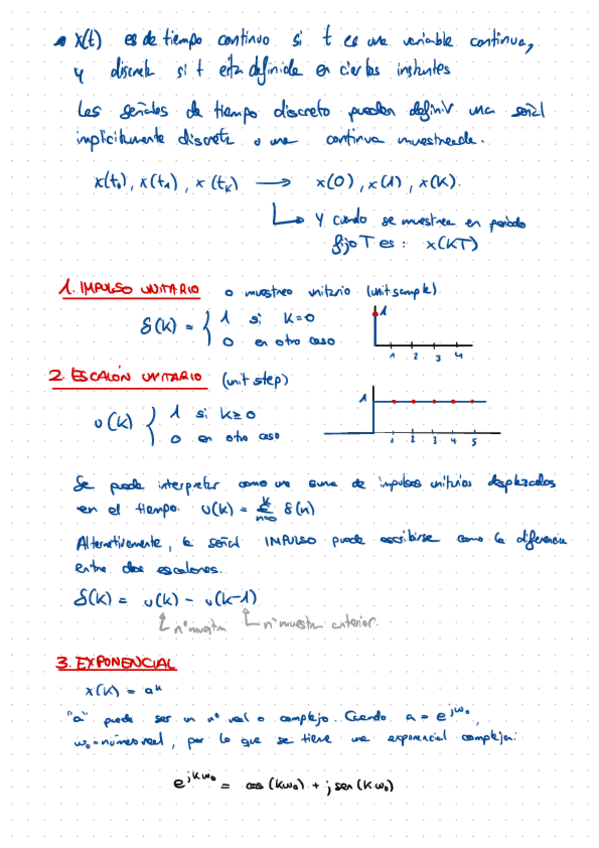 • x(t) es de tiempo continuo si t es una variable continua,
y discreta si t está definida en ciertos instantes
Las señales de tiempo discreto pueden definir una señal
implícitamente discreta o una continua muestreada.
x(t₀), x(t₁), x(tₖ) → x(0), x(1), x(k).
↳ y cuando se muestrea en periodo
fijo T es: x(kT)
1. IMPULSO UNITARIO o muestreo unitario (unit sample)
δ(k) = { 1 si k=0
0 en otro caso
1
1 2 3 4
2. ESCALÓN UNITARIO (unit step)
u(k) { 1 si k≥0
0 en otro caso
1
1 2 3 4 5
Se puede interpretar como una suma de impulsos unitarios desplazados
en el tiempo. u(k) = Σ δ(n)
Alternativamente, la señal IMPULSO puede escribirse como la diferencia
entre dos escalones.
δ(k) = u(k) - u(k-1)
nº muestra nº muestra anterior.
3. EXPONENCIAL
x(k) = aᵏ
"a" puede ser un nº real o complejo. Cuando a = e^jω₀,
ω₀ = número real, por lo que se tiene una exponencial compleja:
e^jkω₀ = cos(kω₀) + j sen(kω₀)